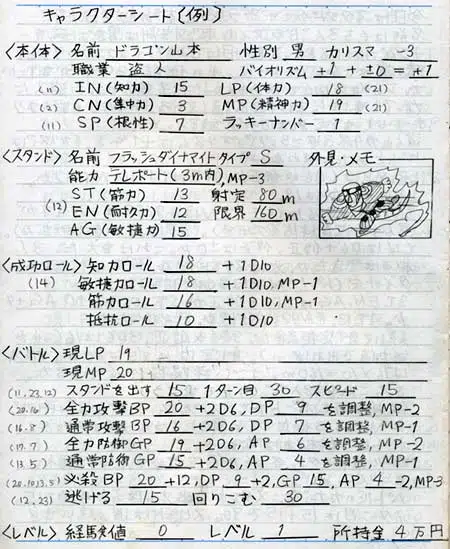 キャラクターシート〔例〕
〈本体〉名前 ドラゴン山本 性別 男 カリスマ -3
職業 盗人 バイオリズム +1 + ±0 = +1
(11) IN(知力) 15 LP(体力) 18 (21)
(2) CN(集中力) 3 MP(精神力) 19 (21)
(11) SP(根性) 7 ラッキーナンバー 1
〈スタンド〉名前 フラッシュダイナマイトタイプ S 外見・メモ
能力 テレポート(3m内)MP-3
ST(筋力) 13 射定 80m
(12) EN(耐久力) 12 限界 160m
AG(敏捷力) 15
〈成功ロール〉知力ロール 18 +1D10
(14) 敏捷力ロール 18 +1D10,MP-1
筋力ロール 16 +1D10,MP-1
抵抗ロール 10 +1D10
〈バトル〉現LP 19
現MP 20
(11,23,12) スタンドを出す 15 1ターン目 30 スピード 15
(20.16) 全力攻撃BP 20 +2D6,DP 9 を調整,MP-2
(16.8) 通常攻撃BP 16 +2D6,DP 7 を調整,MP-1
(17.7) 全力防御GP 19 +2D6,AP 6 を調整,MP-2
(13.5) 通常防御GP 15 +2D6,AP 4 を調整,MP-1
(20.10,13.5) 必殺BP 20 +12,DP 9 +2,GP 15,AP 4 -2,MP-3
(12,23) 逃げる 15 回りこむ 30
〈レベル〉経験値 0 レベル 1 所持金 4万円